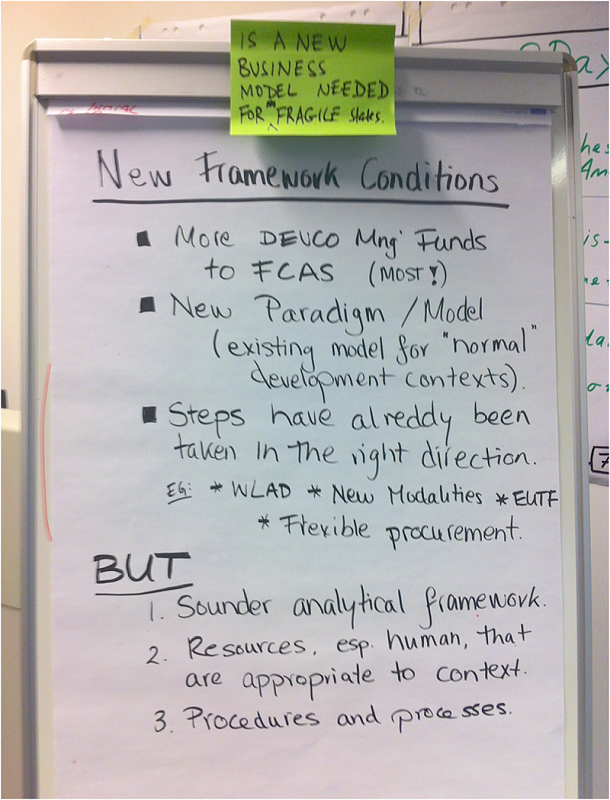 IS A NEW
BUSINESS
MODEL NEEDED
FOR "FRAGILE States.
New Framework Conditions
■ More DEVCO Mng' Funds
to FCAS (MOST!)
■ New Paradigm / Model
(existing model for "normal"
development contexts).
■ Steps have alreddy been
taken in the right direction.
EG: * WLAD * New Modalities * EUTF
* Flexible procurement.
BUT
1. Sounder analytical framework.
2. Resources, esp. human, that
are appropriate to context.
3. Procedures and processes.